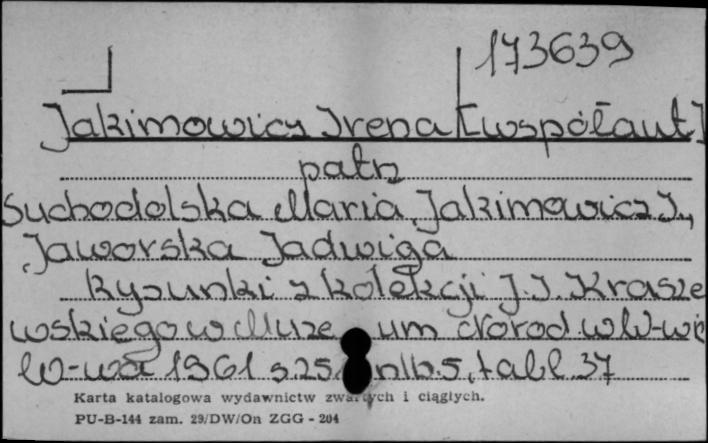 173639
Jakimowicz Irena [współaut]
patrz
Suchodolska Maria, Jakimowicz I.,
Jaworska Jadwiga
Rysunki z kolekcji J.I. Krasze
wskiego w Muzeum Narod. w W-wie
W-wa 1961 s. 25, nlb. 5, tabl. 37
Karta katalogowa wydawnictw zwartych i ciągłych.
PU-B-144 zam. 29/DW/On ZGG - 204